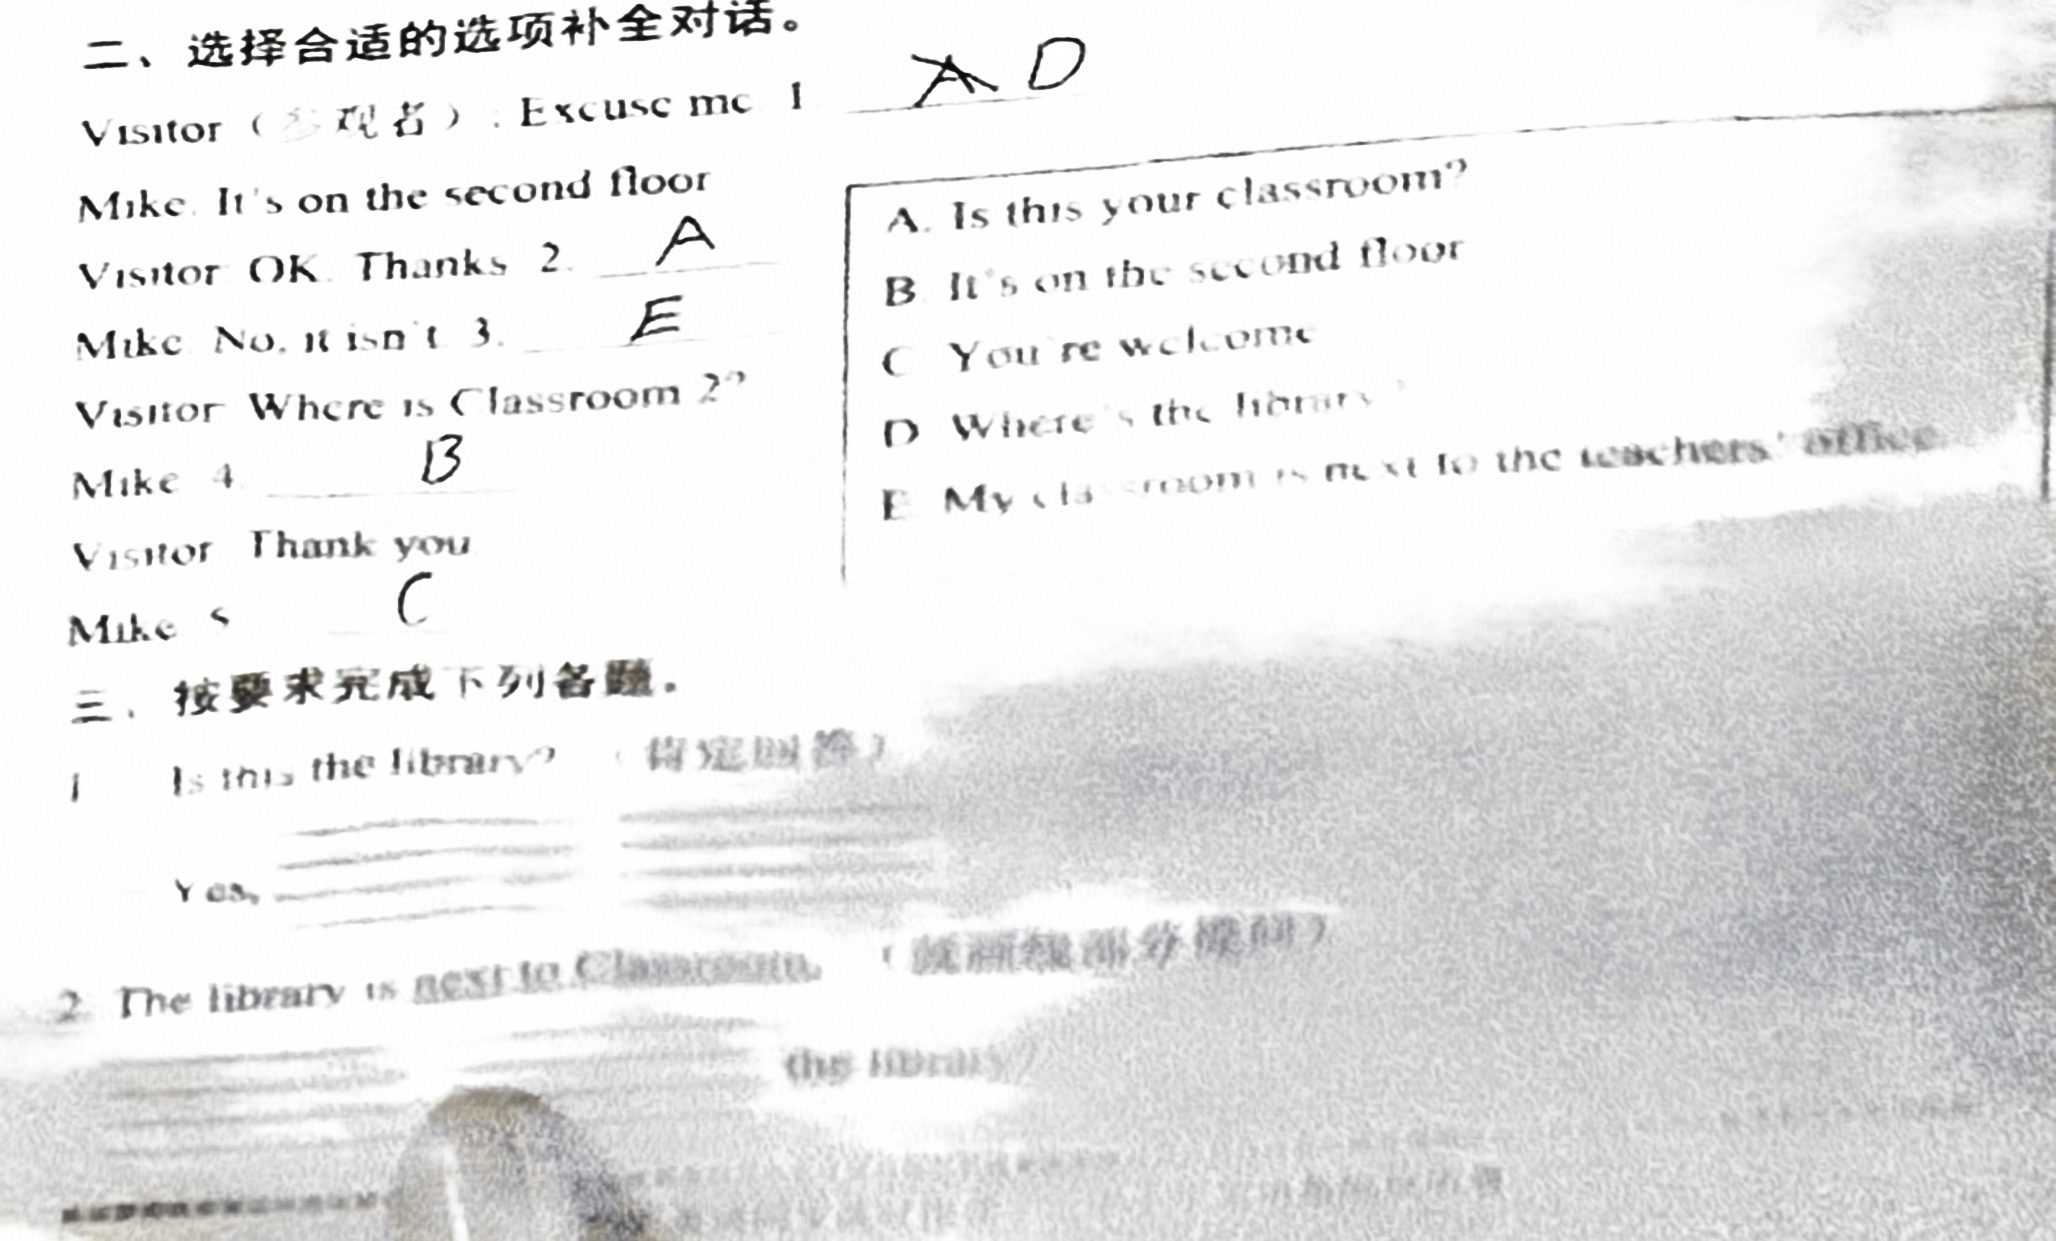 二、选择合适的选项补全对话。
Visitor（参观者）: Excuse me. 1. A D
Mike. It's on the second floor
Visitor: OK. Thanks 2. A
Mike: No, it isn't. 3. E
Visitor Where is Classroom 2?
Mike 4. B
Visitor Thank you
Mike 5 C
A. Is this your classroom?
B. It's on the second floor
C You're welcome
D Where's the library?
E My classroom is next to the teachers' office.
三、按要求完成下列各题。
1 Is this the library? （肯定回答）
Yes,
2 The library is next to Classroom. （就画线部分提问）
the library?